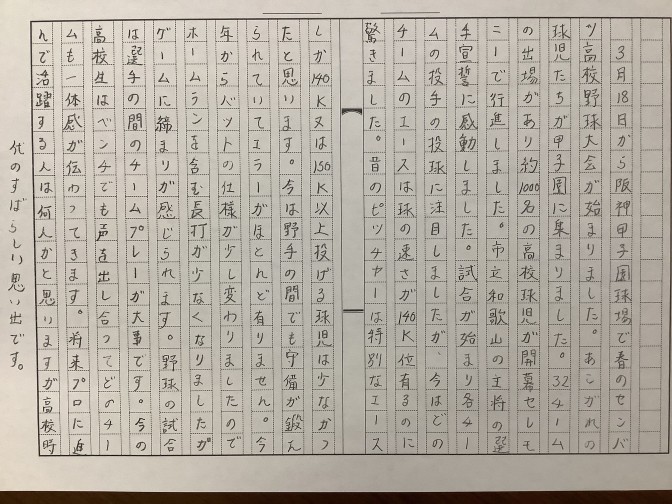 3月18日から阪神甲子園球場で春のセンバ
ツ高校野球大会が始まりました。あこがれの
球児たちが甲子園に集まりました。32チーム
の出場があり約1000名の高校球児が開幕セレモ
ニーで行進しました。市立和歌山の主将の選
手宣誓に感動しました。試合が始まり各チー
ムの投手の投球に注目しましたが、今はどの
チームのエースは球の速さが140K位有るのに
驚きました。昔のピッチャーは特別なエース
しか140K又は150K以上投げる球児は少なかっ
たと思います。今は野手の間でも守備が鍛え
られていてエラーがほとんど有りません。今
年からバットの仕様が少し変わりましたので
ホームランを含む長打が少なくなりましたがゲ
ームに締まりが感じられます。野球の試合
は選手の間のチームプレーが大事です。今の
高校生はベンチでも声を出し合ってどのチー
ムも一体感が伝わってきます。将来プロに進
んで活躍する人は何人かと思いますが高校時
代のすばらしい思い出です。